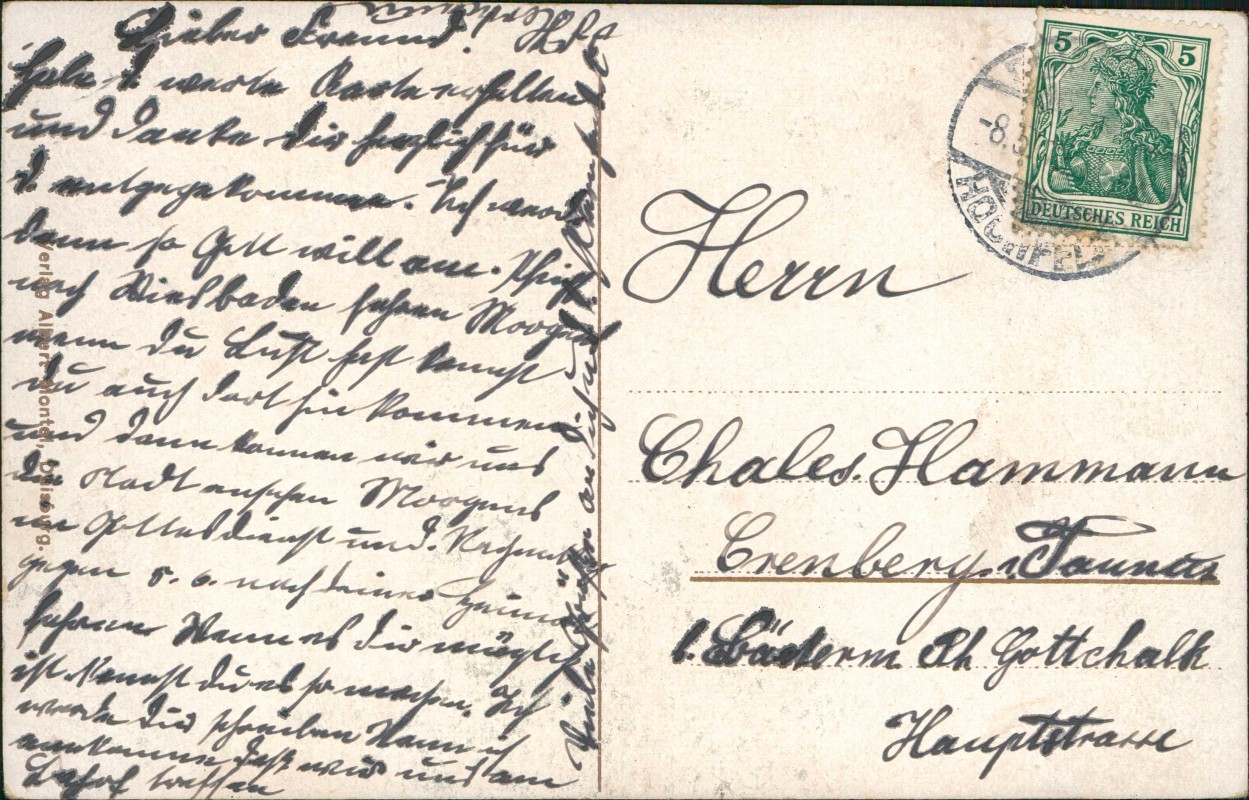 Lieber Freund!
Habe d. werte Karte erhalten
und danke dir herzlich für
d. entgegekommen. Ich werde
dann so Gott will am. Pfingst
nach Wiesbaden fahren Morgens
wenn du Lust hast kannst
du auch dort hin kommen
und dann können wir uns
die Stadt ansehen Morgens
im Gottesdienst und. Nachmit
gegen 5. 6. nach deiner Heimat
fahren Wenn es dir möglich
ist kannst du es so machen. Ich
werde dir schreiben wann ich
ankomme daß wir uns am
Bahnhof treffen
Viele Grüße an dich und
Verlag Albert Montel, Duisbrg.
5 5
DEUTSCHES REICH
-8.3
HOCHFELD
Herrn
Chales. Hammann
Crenberg. i. Taunus
b. Bäckerm Ph Gottchalk
Hauptstrasse